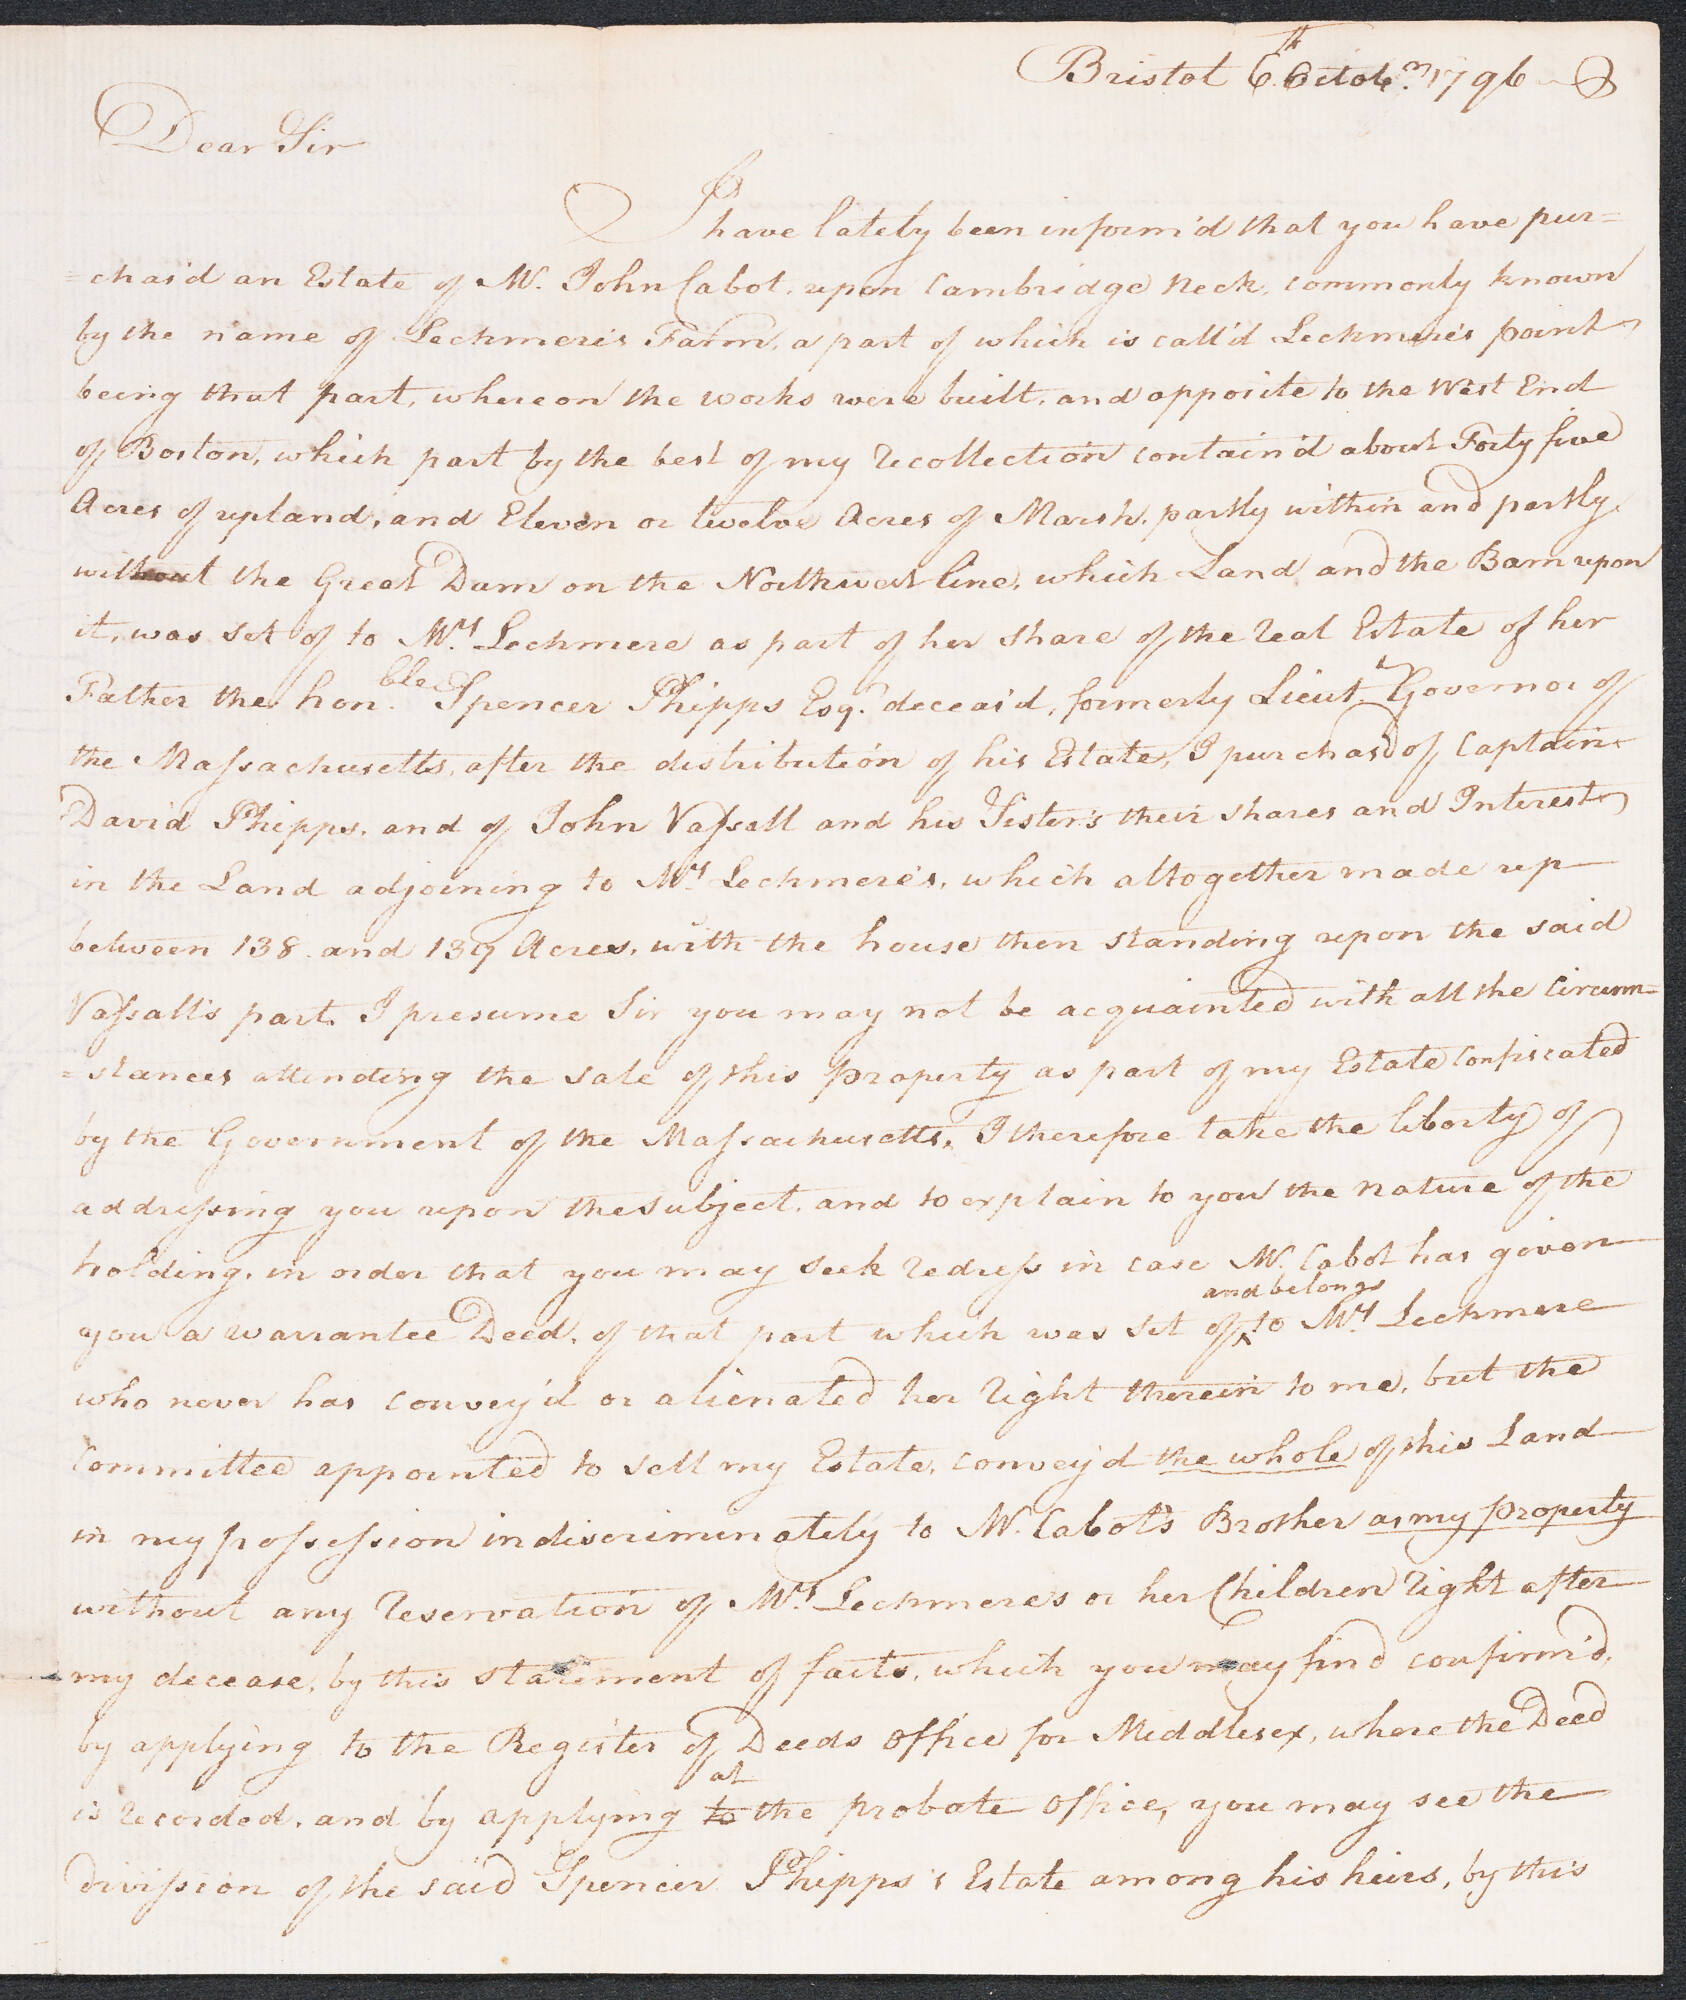 Bristol 6.th Octobr. 1796
Dear Sir
I have lately been inform'd that you have pur=
=chas'd an Estate of Mr. John Cabot, upon Cambridge Neck, commonly known
by the name of Lechmere's Farm, a part of which is call'd Lechmere's point
being that part, whereon the works were built, and opposite to the West End
of Boston, which part by the best of my recollection contain'd about Forty five
Acres of upland, and Eleven or twelve Acres of Marsh, partly within and partly
without the Great Dam on the Northwest line, which Land, and the Barn upon
it, was set of to Mrs. Lechmere as part of her share of the real Estate of her
Father the hon.ble Spencer Phipps Esqr. deceas'd, formerly Lieut. Governor of
the Maſsachusetts, after the distribution of his Estate, I purchas'd of Captain
David Phipps, and of John Vaſsall and his Sister's their shares and Interest
in the Land adjoining to Mrs. Lechmere's, which altogether made up
between 138 and 139 Acres, with the house then standing upon the said
Vaſsall's part. I presume Sir you may not be acquainted with all the Circum=
=stances attending the sale of this property as part of my Estate Confiscated
by the Government of the Maſsachusetts, I therefore take the liberty of
addreſsing you upon the subject, and to explain to you the nature of the
holding, in order that you may seek redreſs in case Mr. Cabot has given
you a warrantee Deed, of that part which was set of and belongs to Mrs. Lechmere
who never has convey'd or alienated her right therein to me, but the
Committee appointed to sell my Estate, convey'd the whole of this Land
in my poſseſsion indiscriminately to Mr. Cabot's Brother as my property
without any reservation of Mrs. Lechmere's or her Children right after
my decease, by this statement of facts, which you may find confirm'd,
by applying to the Register of Deeds office for Middlesex, where the Deed
is recorded, and by applying to at the probate office, you may see the
diviſsion of the said Spencer Phipps's Estate among his heirs, by this